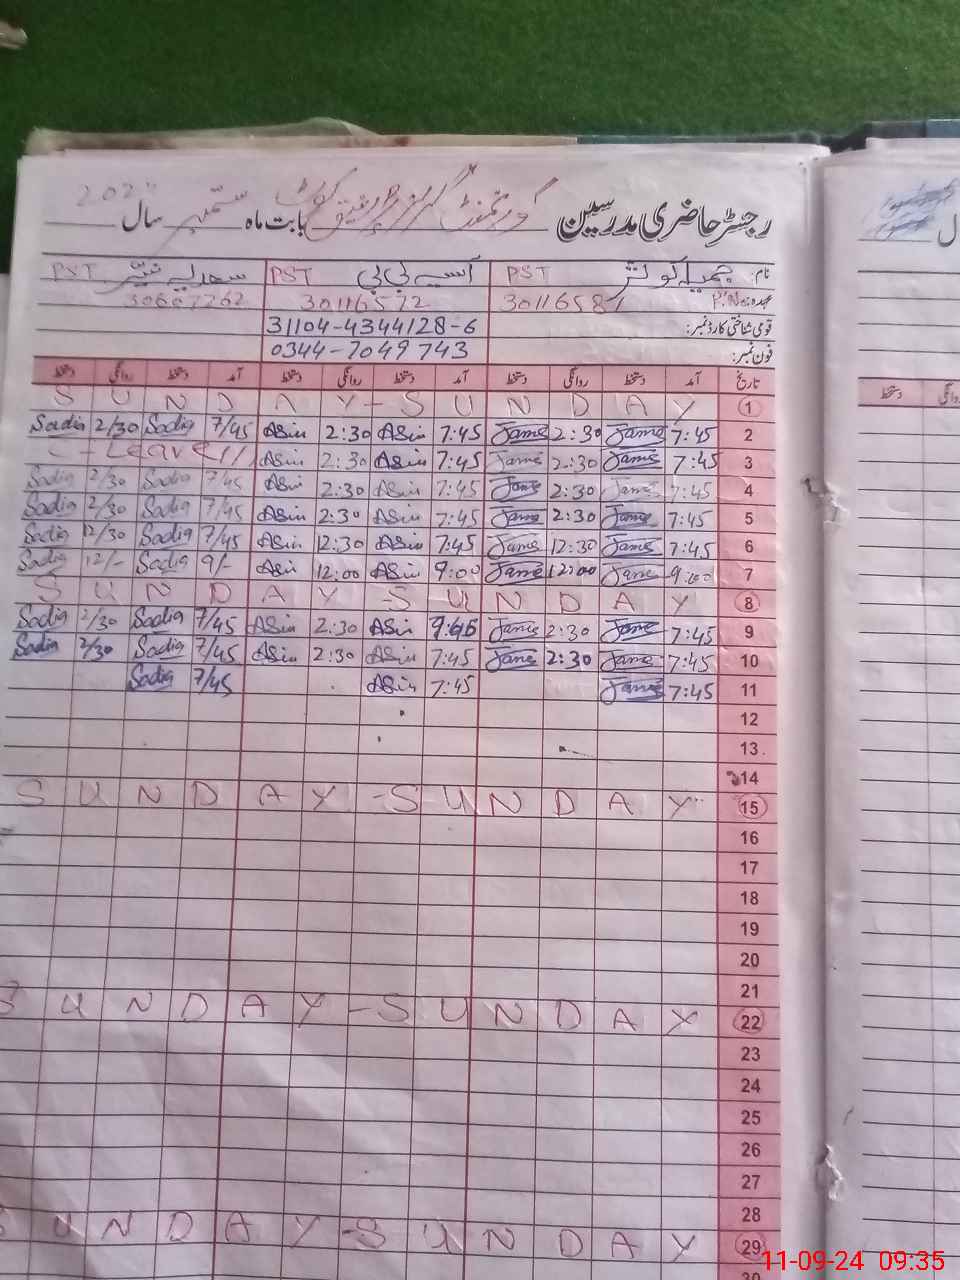 رجسٹر حاضری مدرسین گورنمنٹ گرلز بابت ماہ ستمبر سال 202
نام: جمیلہ کوثر PST آسیہ بی بی PST سعدیہ PST
عہدہ: P.No 30116581 30116572 30607262
قومی شناختی کارڈ نمبر: 31104-4344128-6
فون نمبر: 0344-7049743
تاریخ آمد دستخط روانگی دستخط آمد دستخط روانگی دستخط آمد دستخط روانگی دستخط
S U N D A Y - S U N D A Y 1
Sadia 2/30 Sadia 7/45 Asia 2:30 Asia 7:45 Jame 2:30 Jame 7:45 2
C - Leave Asia 2:30 Asia 7:45 Jame 2:30 Jame 7:45 3
Sadia 2/30 Sadia 7/45 Asia 2:30 Asia 7:45 Jame 2:30 Jame 7:45 4
Sadia 2/30 Sadia 7/45 Asia 2:30 Asia 7:45 Jame 2:30 Jame 7:45 5
Sadia 12/30 Sadia 7/45 Asia 12:30 Asia 7:45 Jame 12:30 Jame 7:45 6
Sadia 12/- Sadia 9/- Asia 12:00 Asia 9:00 Jame 12:00 Jame 9:00 7
S U N D A Y - S U N D A Y 8
Sadia 2/30 Sadia 7/45 Asia 2:30 Asia Jame 2:30 Jame 7:45 9
Sadia 2/30 Sadia 7/45 Asia 2:30 Asia 7:45 Jame 2:30 Jame 7:45 10
Sadia 7/45 Asia 7:45 Jame 7:45 11
12
13
14
S U N D A Y - S U N D A Y 15
16
17
18
19
20
21
S U N D A Y - S U N D A Y 22
23
24
25
26
27
28
S U N D A Y - S U N D A Y 29
30
11-09-24 09:35